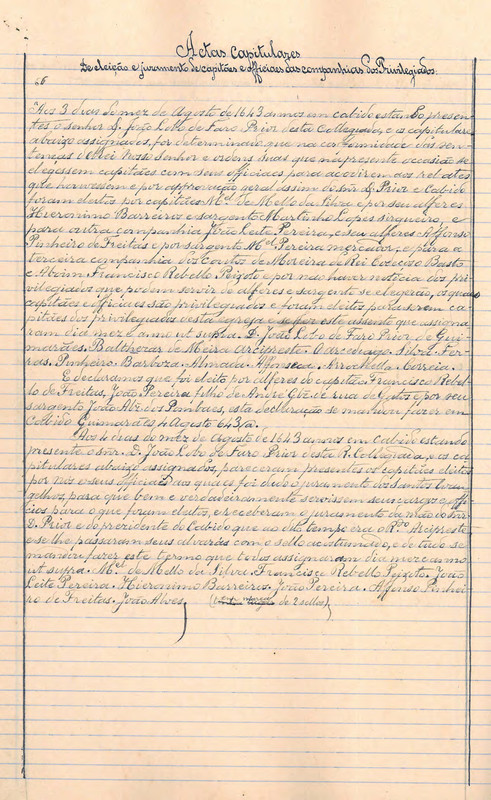 Actas Capitulares
De eleição e juramento de capitães e officiaes das companhias dos Privilegiados.
"Aos 3 dias do mez de Agosto de 1643 annos em cabido estando presen-
tes, o senhor D. João Lobo de Faro Prior desta Collegiada, e os capitulares
abaixo assignados, foi determinado que na conformidade das sen-
tenças d'El-rei Nosso Senhor e ordens suas que na presente occasião se
elegessem capitães com seus officiaes para acodirem aos rebates
que houvessem e por approvação geral dissim do snr. D. Prior e Cabido
foram eleitos por capitães M.el de Mello da Silva e por seu alferes
Hieronimo Barreiros e sargento Martinho Lopes sirgueiro, e
para outra companhia João Leite Pereira, e seu alferes Affonso
Pinheiro de Freitas e por sargento M.el Pereira mercador, e para a
terceira companhia dos Coutos de Moreira de Rei Codeçoso Basto
e Aboim Francisco Rebello Peixoto e por não haver noticia dos pri-
vilegiados que podem servir d'alferes e sargento se elegerão, os quaes
capitães e officiaes são privilegiados e foram eleitos para serem ca-
pitães dos privilegiados desta Igreja e se fez este assento que assigna-
ram dia mez anno ut supra. D. João Lobo de Faro Prior de Gui-
marães. Balthazar de Meira Arcipreste. O arcediago Silva. Fer-
ras. Pinheiro. Barboza. Almada. Affonseca. Arrochella. Correia.
E declaramos que foi eleito por alferes do capitão Francisco Rebel-
lo de Freitas, João Pereira filho de André Glz. de rua de Gatos e por seu
sargento João Alz. dos Pombaes, esta declaração se mandou fazer em
Cabido Guimarães 4 Agosto 643/a.
Aos 4 dias do mez de Agosto de 1643 annos em cabido estando
presente o snr. D. João Lobo de Faro Prior desta R. Collegiada, e os ca-
pitulares abaixo assignados, pareceram presentes os capitães eleitos
por nós e seus officiaes aos quaes foi dado o juramento dos Santos Evan-
gelhos, para que bem e verdadeiramente servissem seus cargos e offi-
cios para o que foram eleitos, e receberam o juramento da mão do snr.
D. Prior e do prezidente do Cabido que ao tal tempo era o R.do Arcipreste
e se lhe passaram seus alvarás com o sello acostumado, e de tudo se
mandou fazer este termo que todos assignaram dia mez e anno
ut supra. M.el de Mello da Silva. Francisco Rebello Peixoto. João
Leite Pereira. Hieronimo Barreiros. João Pereira. Affonso Pinhei-
ro de Freitas. João Alves. de 2 sellos)